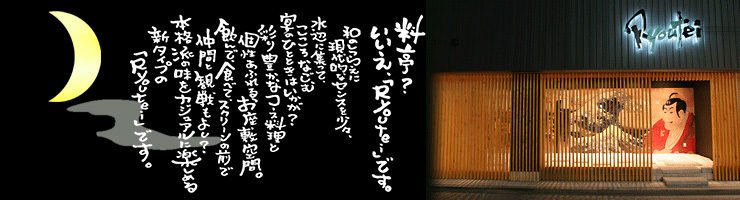 料亭?
いいえ、「Ryoutei」です。
現代的なセンスを少々、
水辺に集って、
こころなごむ
宴のひとときはいかが?
彩り豊かなコース料理と
個性あふれるお座敷空間。
飲んで、食べて、スクリーンの前で
仲間と観戦もよし!?
本格派の味をカジュアルに楽しめる
新タイプの
「Ryoutei」です。
Ryoutei